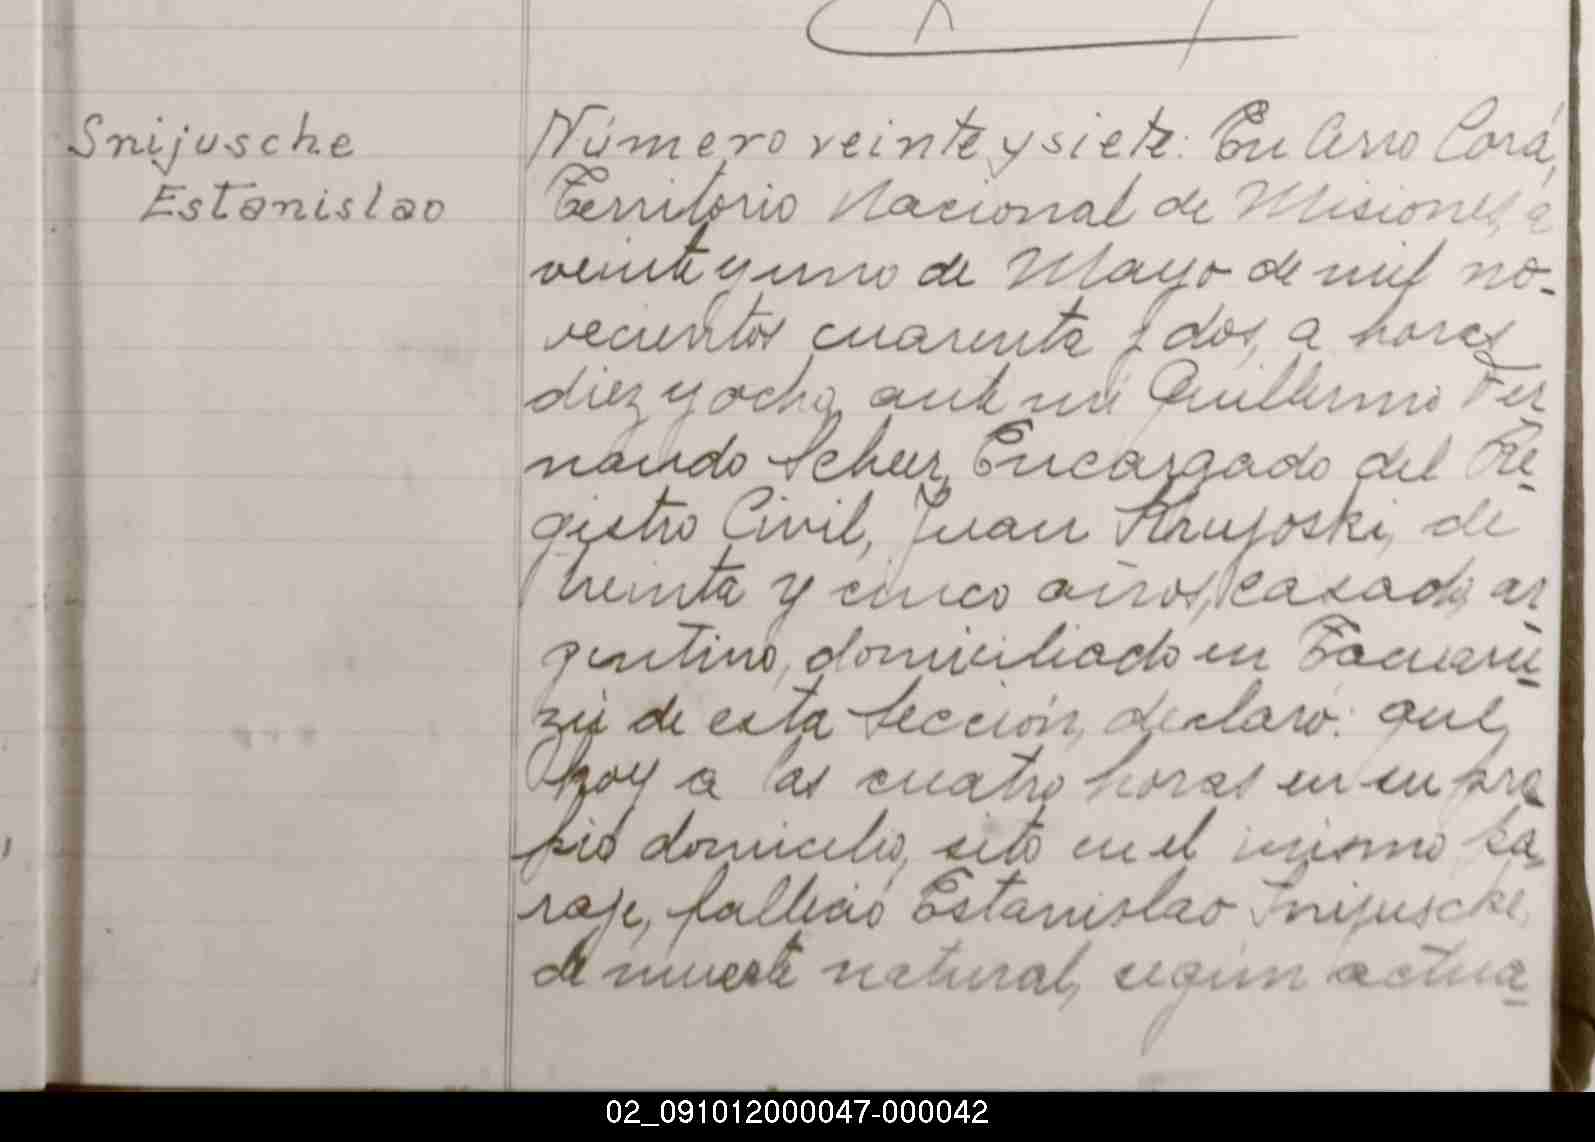 Snijusche
Estanislao
Número veinte y siete: En Cerro Corá,
Territorio Nacional de Misiones, a
veinte y uno de Mayo de mil no-
vecientos cuarenta y dos, a horas
diez y ocho, ante mi Guillermo Fer
nando Scheer, Encargado del Re-
gistro Civil, Juan Krujoski, de
treinta y cinco años, casado, ar
gentino, domiciliado en Tacuaru-
zú de esta Sección, declaró: que,
hoy a las cuatro horas en su pro
pio domicilio, sito en el mismo pa
raje, falleció Estanislao Snijusche,
de muerte natural, según actua-
02_091012000047-000042